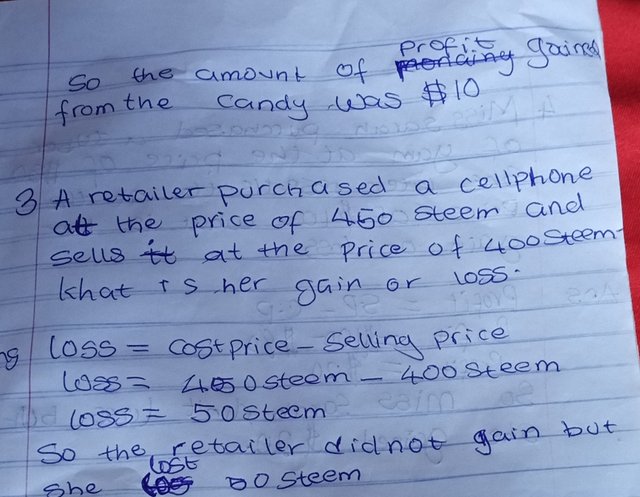 So the amount of profit gained
from the candy was $10
3 A retailer purchased a cellphone
at the price of 450 steem and
sells it at the price of 400 steem
khat is her gain or loss.
loss = cost price - selling price
loss = 450 steem - 400 steem
loss = 50 steem
So the retailer did not gain but
she lost 50 steem